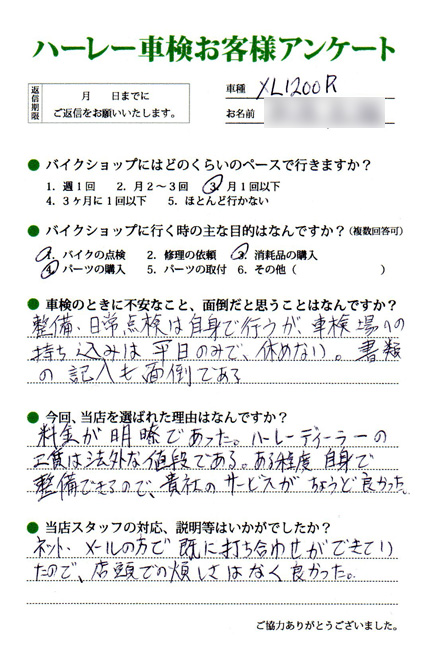 ハーレー車検お客様アンケート
返信期限
月 日までに
ご返信をお願いいたします。
車種 XL1200R
お名前
● バイクショップにはどのくらいのペースで行きますか？
1. 週1回 2. 月2～3回 3. 月1回以下
4. 3ヶ月に1回以下 5. ほとんど行かない
● バイクショップに行く時の主な目的はなんですか？(複数回答可)
1. バイクの点検 2. 修理の依頼 3. 消耗品の購入
4. パーツの購入 5. パーツの取付 6. その他（ ）
● 車検のときに不安なこと、面倒だと思うことはなんですか？
整備・日常点検は自身で行うが、車検場への
持ち込みは平日のみで、休めない。書類
の記入も面倒である
● 今回、当店を選ばれた理由はなんですか？
料金が明瞭であった。ハーレーディーラーの
工賃は法外な値段である。ある程度自身で
整備できるので、貴社のサービスがちょうど良かった。
● 当店スタッフの対応、説明等はいかがでしたか？
ネット・メールの方で既に打ち合わせができてい
たので、店頭での煩しさはなく良かった。
ご協力ありがとうございました。